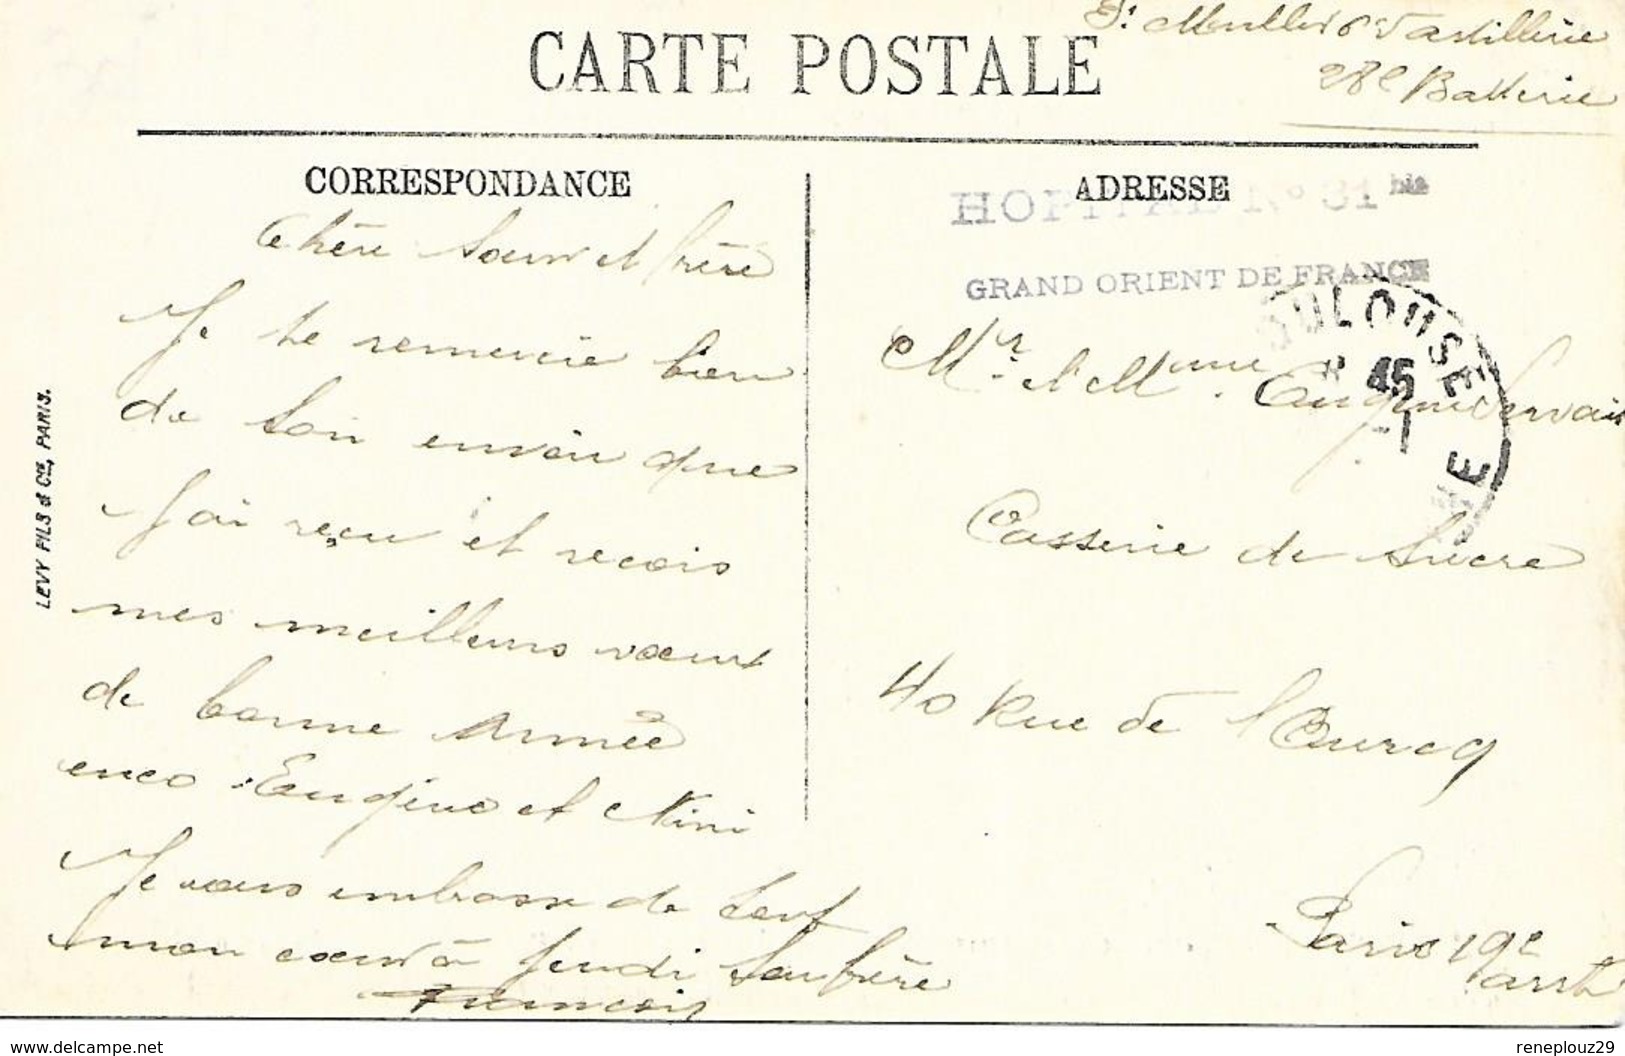 Muller 6e d'artillerie
28e Batterie
CARTE POSTALE
CORRESPONDANCE
Chère Soeur et frère
Je te remercie bien
de ton envoi que
J'ai reçu et recois
mes meilleurs voeux
de bonne Année
Eugène et Nini
Je vous embrasse de tout
mon coeur à Jeudi ton frère
Francois
ADRESSE
HOPITAL No 31 bis
GRAND ORIENT DE FRANCE
TOULOUSE
45
Mr. et Mme. Eugène Servais
Casserie de Sucre
40 Rue de l'Ourcq
Paris 19e
arrt
LEVY FILS & Cie, PARIS.
www.delcampe.net
reneplouz29